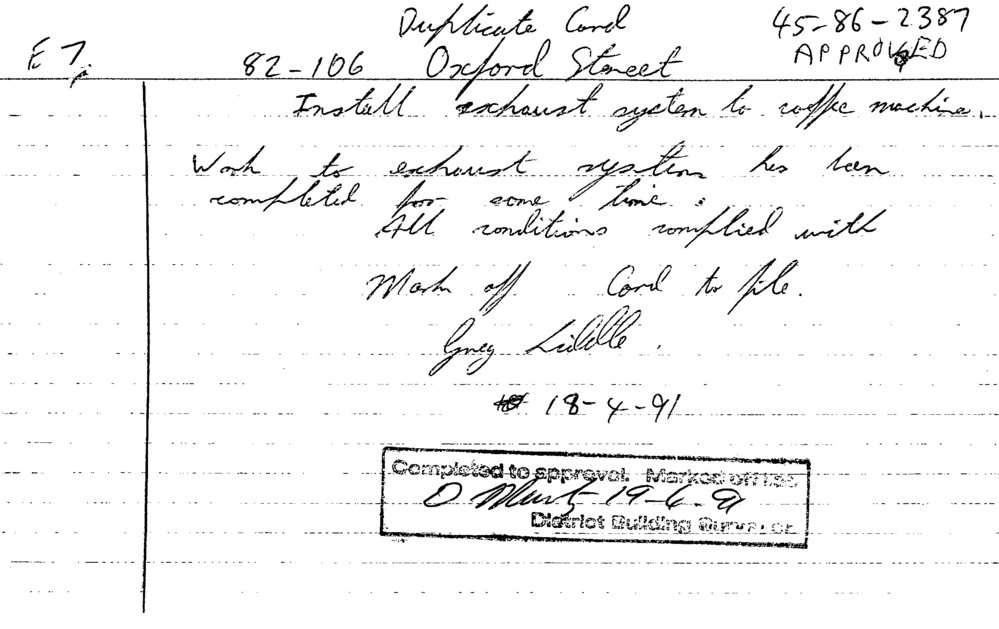 Duplicate Card 45-86-2387
E7. 82-106 Oxford Street APPROVED
Install exhaust system to coffee machine.
Work to exhaust system has been
completed for some time.
All conditions complied with
Mark off Card to file.
Greg Liddle.
18-4-91
Completed to approval. Marked off
19-6-91
District Building Surveyor